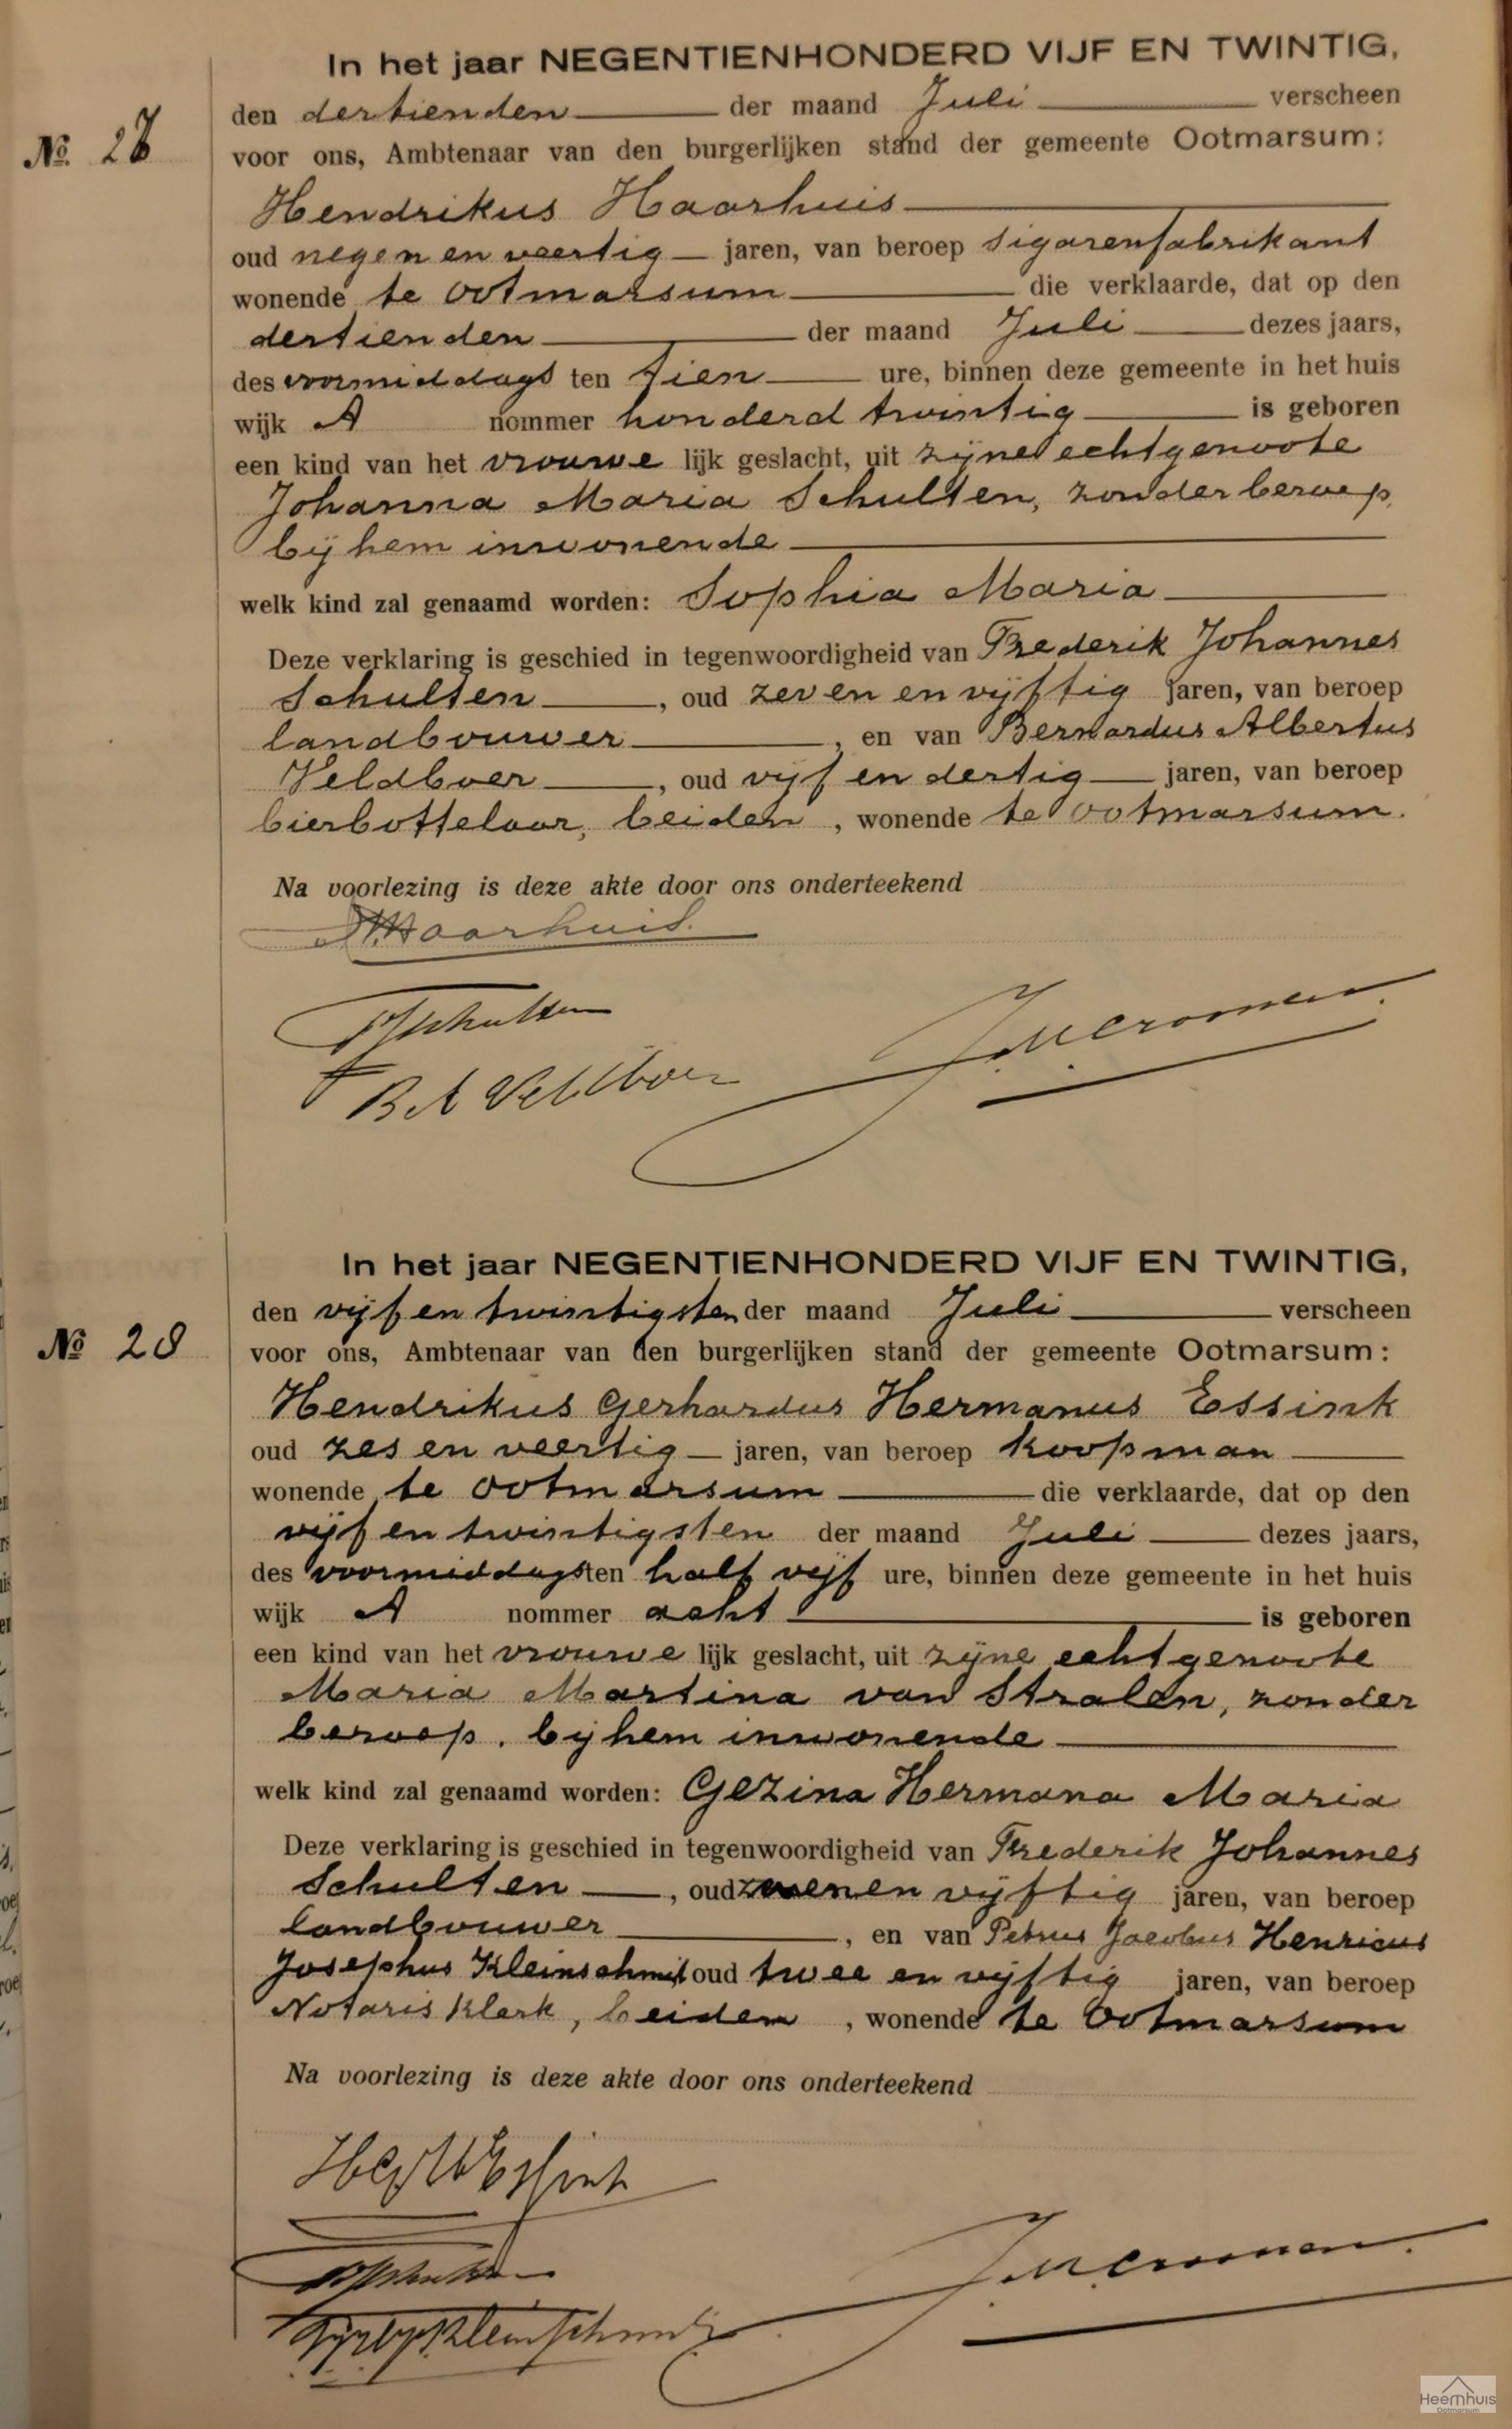 In het jaar NEGENTIENHONDERD VIJF EN TWINTIG,
den dertienden der maand Juli verscheen
No. 27 voor ons, Ambtenaar van den burgerlijken stand der gemeente Ootmarsum:
Hendrikus Haarhuis
oud negen en veertig jaren, van beroep sigarenfabrikant
wonende te Ootmarsum die verklaarde, dat op den
dertienden der maand Juli dezes jaars,
des voormiddags ten tien ure, binnen deze gemeente in het huis
wijk A nommer honderd twintig is geboren
een kind van het vrouwe lijk geslacht, uit zijne echtgenoote
Johanna Maria Schulten, zonder beroep,
bij hem inwonende
welk kind zal genaamd worden: Sophia Maria
Deze verklaring is geschied in tegenwoordigheid van Frederik Johannes
Schulten, oud zeven en vijftig jaren, van beroep
landbouwer, en van Bernardus Albertus
Veldboer, oud vijf en dertig jaren, van beroep
bierbottelaar, beiden, wonende te Ootmarsum.
Na voorlezing is deze akte door ons onderteekend
Haarhuis.
FJSchulten
B A Veldboer
In het jaar NEGENTIENHONDERD VIJF EN TWINTIG,
den vijf en twintigsten der maand Juli verscheen
No 28 voor ons, Ambtenaar van den burgerlijken stand der gemeente Ootmarsum:
Hendrikus Gerhardus Hermanus Essink
oud zes en veertig jaren, van beroep koopman
wonende te Ootmarsum die verklaarde, dat op den
vijf en twintigsten der maand Juli dezes jaars,
des voormiddags ten half vijf ure, binnen deze gemeente in het huis
wijk A nommer acht is geboren
een kind van het vrouwe lijk geslacht, uit zijne echtgenoote
Maria Martina van Stralen, zonder
beroep, bij hem inwonende
welk kind zal genaamd worden: Gezina Hermana Maria
Deze verklaring is geschied in tegenwoordigheid van Frederik Johannes
Schulten, oud zeven en vijftig jaren, van beroep
landbouwer, en van Petrus Jacobus Henricus
Josephus Kleinschmit oud twee en vijftig jaren, van beroep
Notaris klerk, beiden, wonende te Ootmarsum
Na voorlezing is deze akte door ons onderteekend
HGHEssink
FJSchulten
Kleinschmit
Heemhuis
Ootmarsum